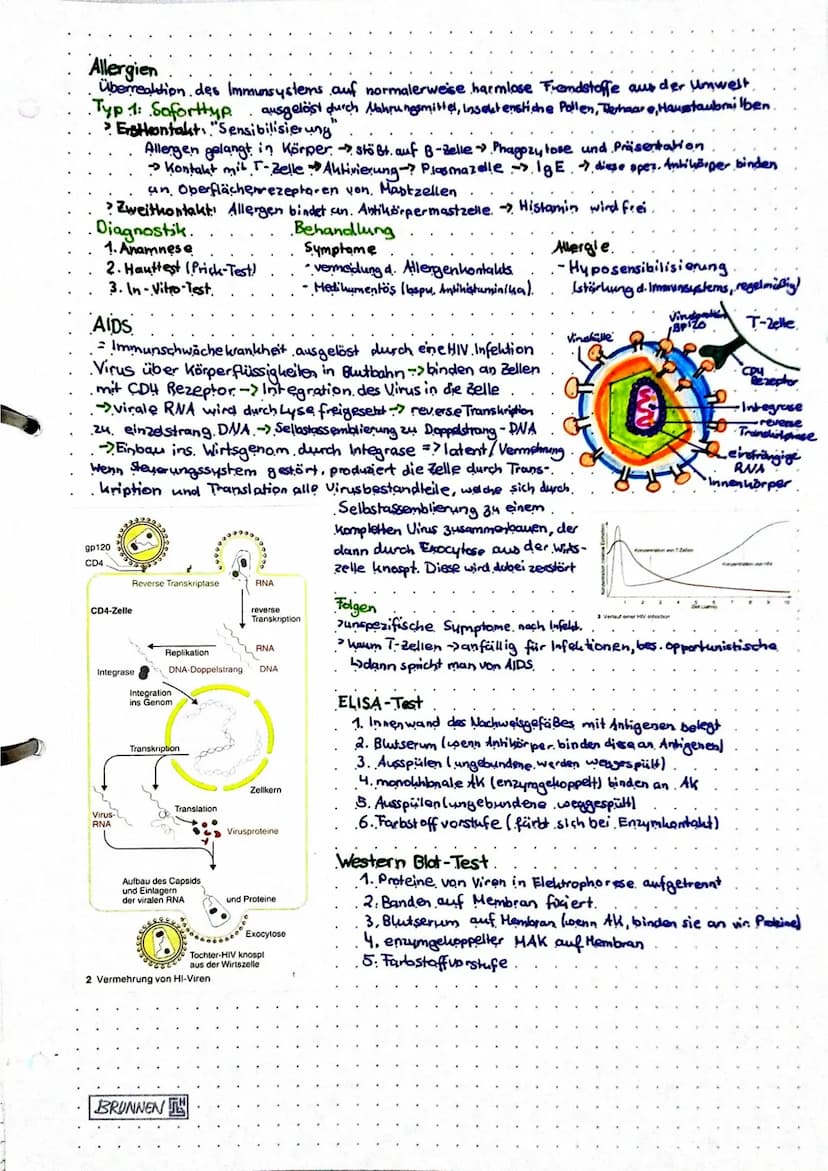 Allergien
Überreaktion des Immunsystems auf normalerweise harmlose Fremdstoffe aus der Umwelt
Typ 1: Soforttyp ausgelöst durch Nahrungsmittel, Insektenstiche Pollen, Tierhaare, Haustaubmilben
> Erstkontakt: "Sensibilisierung"
Allergen gelangt in Körper → stößt auf B-Zelle → Phagozytose und Präsentation
→ Kontakt mit T-Zelle → Aktivierung → Plasmazelle → IgE → diese spez. Antikörper binden
an Oberflächenrezeptoren von Mastzellen
> Zweitkontakt: Allergen bindet an Antikörpermastzelle → Histamin wird frei
Diagnostik
1. Anamnese
2. Hauttest (Prick-Test)
3. In-Vitro-Test
Behandlung
Symptome
- Vermeidung d. Allergenkontakts
- Medikamentös (bspw. Antihistaminika)
Allergie
- Hyposensibilisierung
(stärkung d. Immunsystems, regelmäßig)
AIDS
= Immunschwächekrankheit ausgelöst durch eine HIV Infektion
Virus über Körperflüssigkeiten in Blutbahn → binden an Zellen
mit CD4 Rezeptor → Integration des Virus in die Zelle
→ virale RNA wird durch Lyse freigesetzt → reverse Transkription
zu einzelstrang DNA → Selbstassemblierung zu Doppelstrang-DNA
→ Einbau ins Wirtsgenom durch Integrase => latent/Vermehrung
Wenn Steuerungssystem gestört, produziert die Zelle durch Trans-
kription und Translation alle Virusbestandteile, welche sich durch
Selbstassemblierung zu einem
kompletten Virus zusammenbauen, der
dann durch Exocytose aus der Wirts-
zelle knospt. Diese wird dabei zerstört
Virushülle
Virusprotein
T-Zelle
CD4
Rezeptor
Integrase
reverse
Transkriptase
einsträngige
RNA
Innenkörper
gp120
CD4
Reverse Transkriptase
RNA
CD4-Zelle
reverse
Transkription
Replikation
RNA
Integrase
DNA-Doppelstrang
DNA
Integration
ins Genom
Transkription
Zellkern
Virus-
RNA
Translation
Virusproteine
Aufbau des Capsids
und Einlagern
der viralen RNA
und Proteine
Exocytose
Tochter-HIV knospt
aus der Wirtszelle
2 Vermehrung von HI-Viren
Konzentration von T-Zellen
Konzentration von HIV
Zeit (Jahre)
3 Verlauf einer HIV-Infektion
Folgen
> unspezifische Symptome nach Infekt.
> kaum T-Zellen → anfällig für Infektionen, bes. opportunistische
↳ dann spricht man von AIDS
ELISA-Test
1. Innenwand des Nachweisgefäßes mit Antigenen belegt
2. Blutserum (wenn Antikörper binden diese an Antigenen)
3. Ausspülen (ungebundene werden weggespült)
4. monoklonale AK (enzymgekoppelt) binden an AK
5. Ausspülen (ungebundene weggespült)
6. Farbstoffvorstufe (färbt sich bei Enzymkontakt)
Western Blot-Test
1. Proteine von Viren in Elektrophorese aufgetrennt
2. Banden auf Membran fixiert
3. Blutserum auf Membran (wenn AK, binden sie an vir. Proteine)
4. enzymgekoppelter MAK auf Membran
5. Farbstoffvorstufe
BRUNNEN